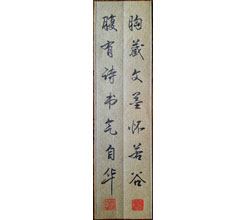 胸藏文墨怀若谷
腹有诗书气自华